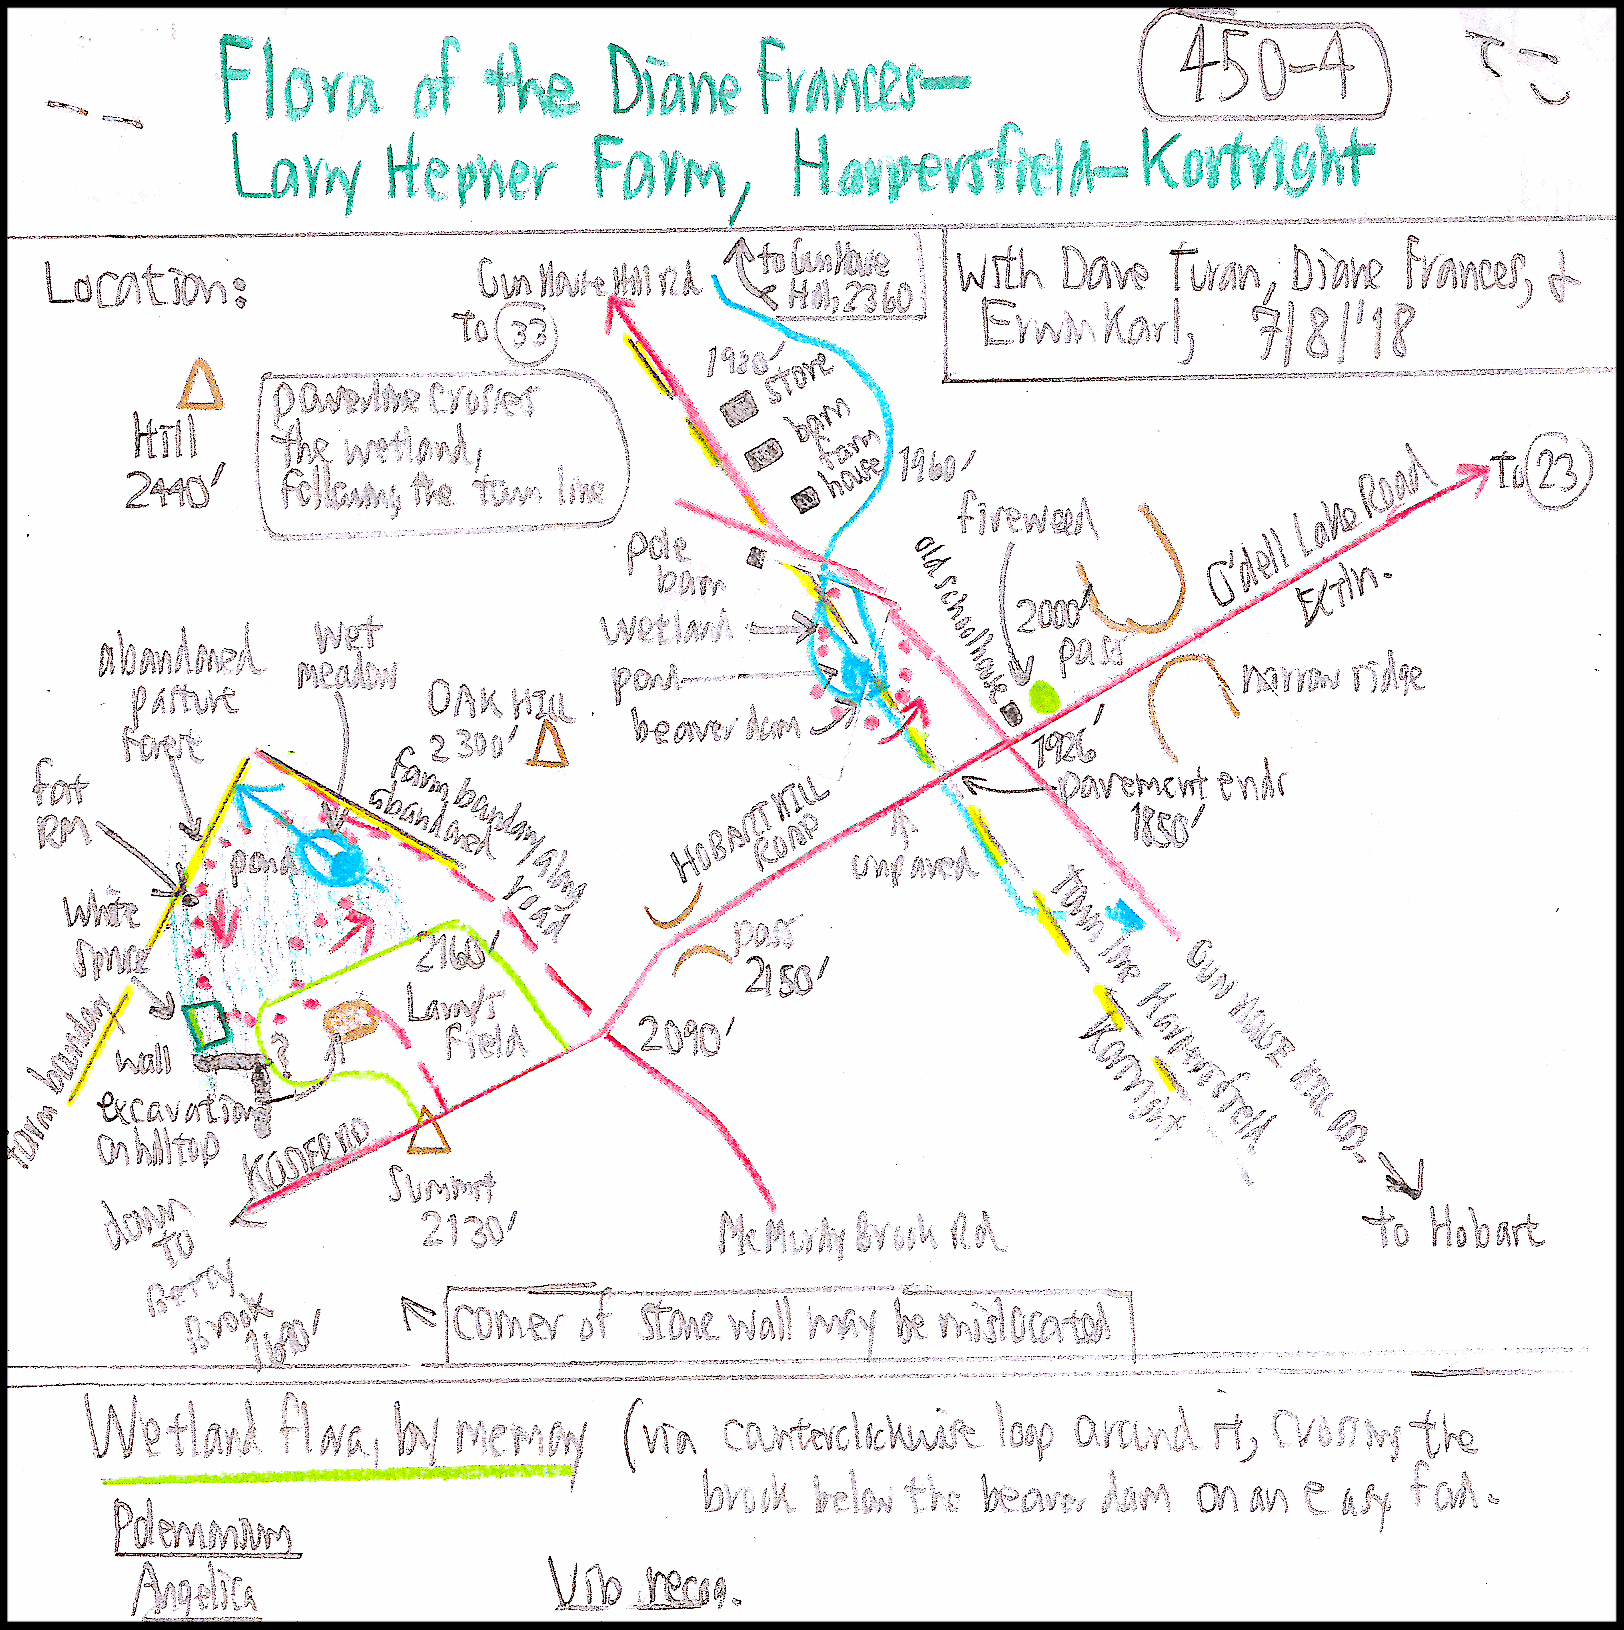 450-4
Flora of the Diane Frances-
Larry Hepner Farm, Harpersfield-Kortright
Location:
With Dave Turan, Diane Frances, &
Erwin Karl, 7/8/'18
Gun House Hill Rd
to 33
to Gun House
Hill, 2360
Hill
2440'
powerline crosses
the wetland,
following the town line
1980'
store
barn
farm
house
1960'
fireweed
to 23
O'dell Lake Road
Extn.
pole
barn
old schoolhouse
2000'
pass
wetland
pond
beaver dam
narrow ridge
1926'
pavement ends
1850'
unpaved
abandoned
pasture
forest
wet
meadow
OAK HILL
2300'
farm boundary along
abandoned
road
for
RM
pond
HOBART HILL
ROAD
White
Spruce
2160'
Larry's
field
pass
2150'
2090'
Town line Harpersfield
Kortright
GUN HOUSE HILL RD.
to Hobart
farm boundary
wall
?
excavation
on hilltop
KOSIER RD
Summit
2130'
down
to
Betty
Brook
1600'
McMurdy Brook Rd
corner of stone wall may be mislocated
Wetland flora, by memory (via counterclockwise loop around it, crossing the
brook below the beaver dam on an easy ford.
Polemonium
Angelica
Vib recog.